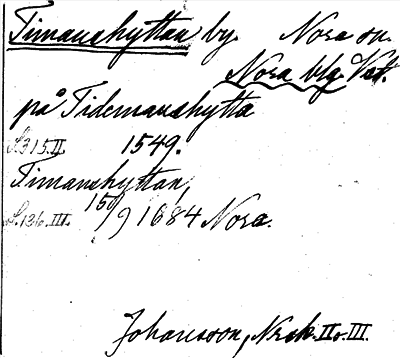 Timanshyttan by. Nora sn.
Nora blg. Vst.
på Tidemanshytta
S. 315. II. 1549.
Timanshyttan,
S. 136. III. 150/9) 1684 Nora.
Johansson, Nrsk. II o. III.